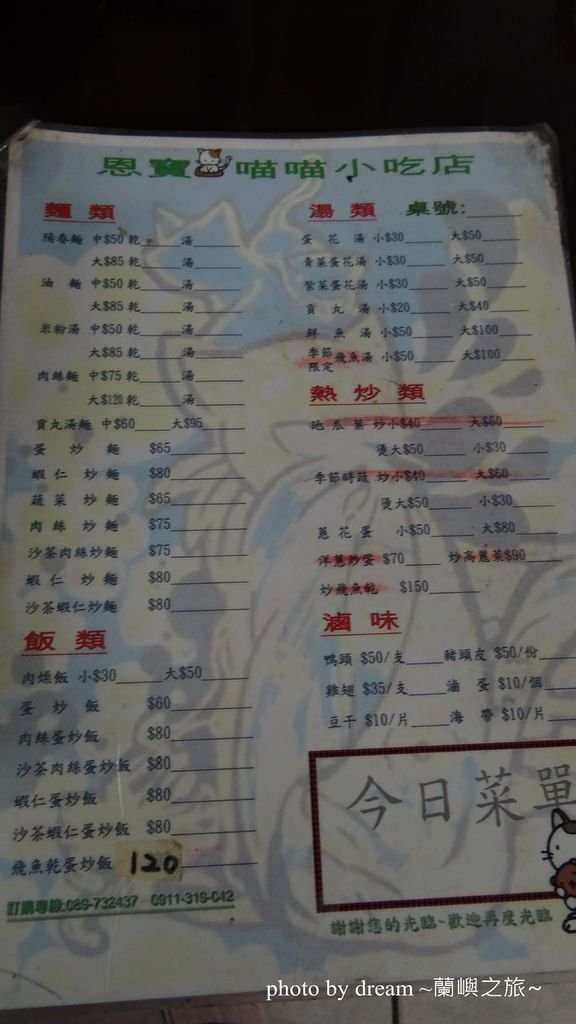 恩寶 喵喵小吃店
麵類
陽春麵 中$50 乾____ 湯____
大$85 乾____ 湯____
油麵 中$50 乾____ 湯____
大$85 乾____ 湯____
米粉湯 中$50 乾____ 湯____
大$85 乾____ 湯____
肉絲麵 中$75 乾____ 湯____
大$120 乾____ 湯____
貢丸湯麵 中$60____ 大$95____
蛋炒麵 $65____
蝦仁炒麵 $80____
蔬菜炒麵 $65____
肉絲炒麵 $75____
沙茶肉絲炒麵 $75____
蝦仁炒麵 $80____
沙茶蝦仁炒麵 $80____
飯類
肉燥飯 小$30____ 大$50____
蛋炒飯 $60____
肉絲蛋炒飯 $80____
沙茶肉絲蛋炒飯 $80____
蝦仁蛋炒飯 $80____
沙茶蝦仁蛋炒飯 $80____
飛魚乾蛋炒飯 120____
訂購專線:089-732437 0911-316-042
湯類 桌號:____
蛋花湯 小$30____ 大$50____
青菜蛋花湯 小$30____ 大$50____
紫菜蛋花湯 小$30____ 大$50____
貢丸湯 小$20____ 大$40____
鮮魚湯 小$50____ 大$100____
季節限定 飛魚湯 小$50____ 大$100____
熱炒類
地瓜葉 炒小$40____ 大$60____
燙大$50____ 小$30____
季節時蔬 炒小$40____ 大$60____
燙大$50____ 小$30____
蔥花蛋 小$50____ 大$80____
洋蔥炒蛋 $70____ 炒高麗菜$90____
炒飛魚乾 $150____
滷味
鴨頭 $50/支____ 豬頭皮 $50/份____
雞翅 $35/支____ 滷蛋 $10/個____
豆干 $10/片____ 海帶 $10/片____
今日菜單
謝謝您的光臨~歡迎再度光臨
photo by dream ~蘭嶼之旅~